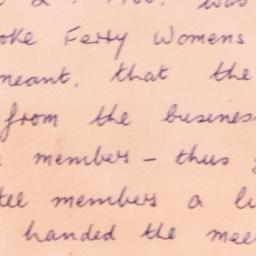 was
oke Ferry Womens
meant, that the
from the business
member - thus
tee members a
handed the mee